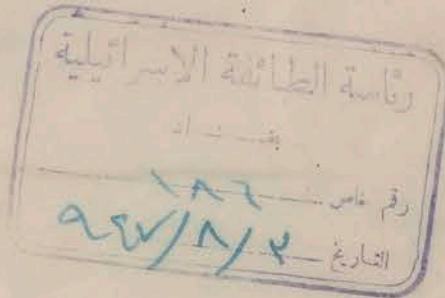 رئاسة الطائفة الاسرائيلية
بغـــداد
رقم خاص ١٨٦
التاريخ ٩٤٧/٨/٢